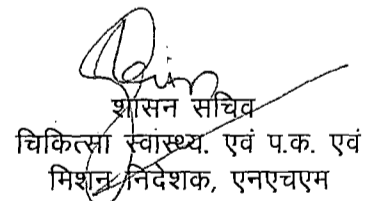 शासन सचिव
चिकित्सा स्वास्थ्य. एवं प.क. एवं
मिशन निदेशक, एनएचएम